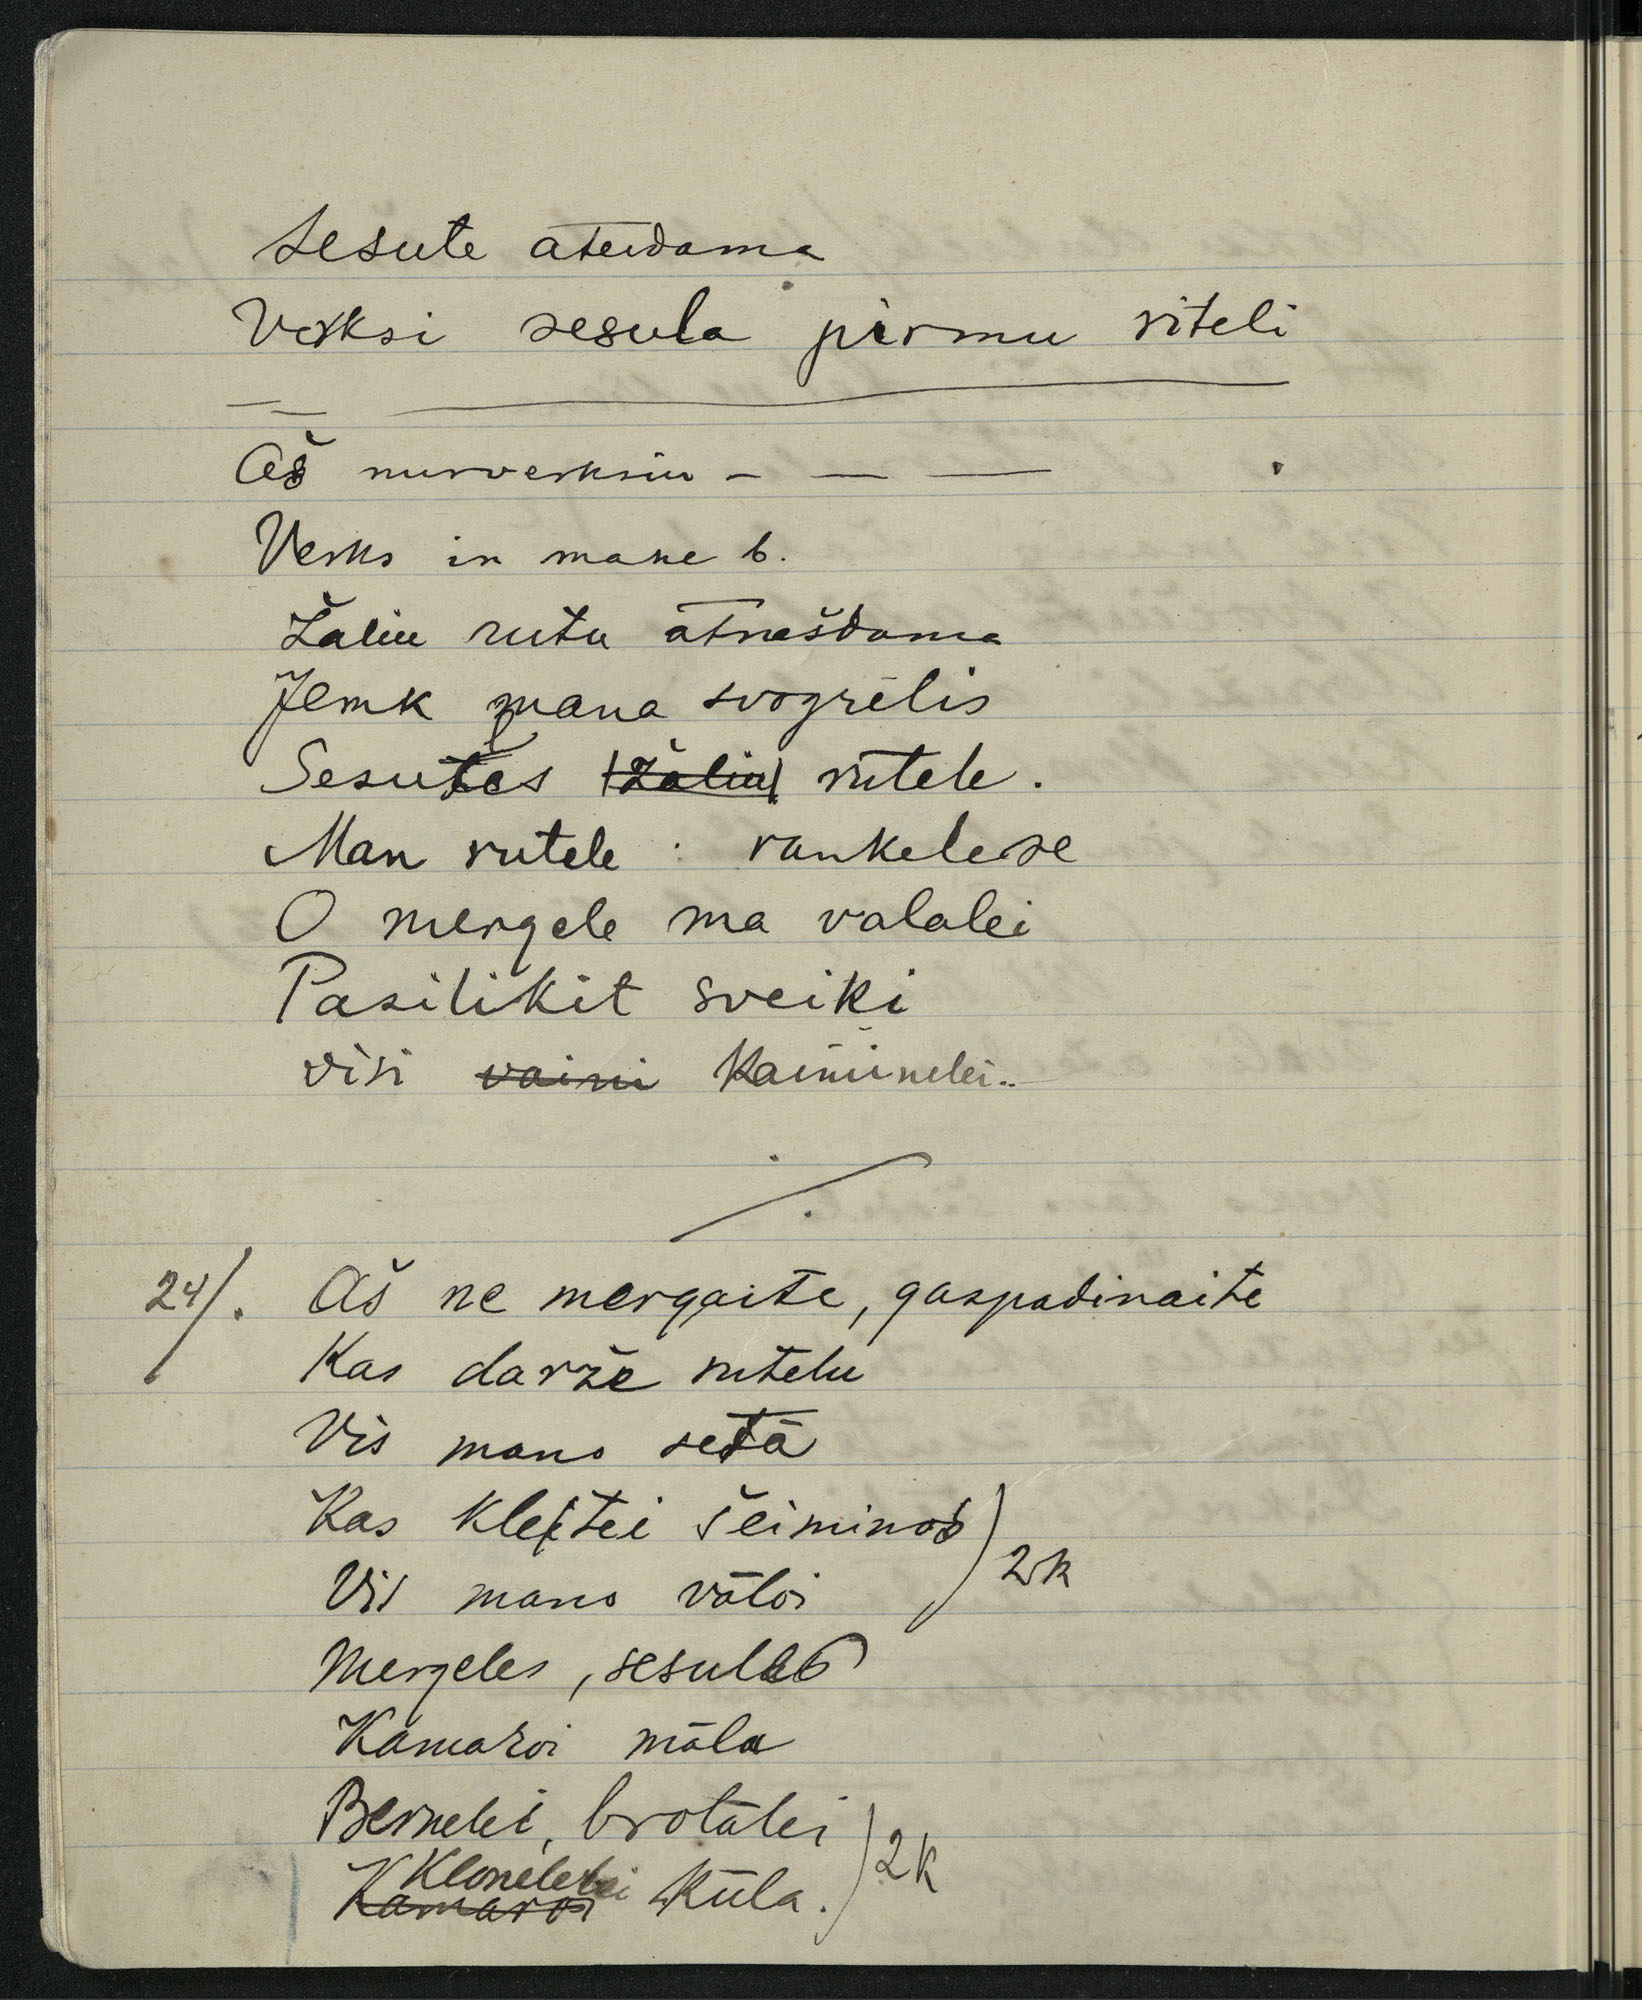 Sesute ateidama
Verksi sesula pirmu riteli
Aš nurverksiu – — —
Verks in mane b.
Žaliu rutu atnešdama
Jemk mana svogrēlis
Sesutes žaliu rūtele.
Man rutele rankelese
O mergele ma valalei
Pasilikit sveiki
visi vaini Kaiminelei..
24/. Aš ne mergaite, gaspadinaite
Kas darže rutelu
Vis mano setā
Kas kleitei šeiminos
Vis mano vāloi 2k
Mergeles, sesules
Kamaroi māla
Bernelei, brotālei 2k
Kloneletei
Kamaroi Kūla.